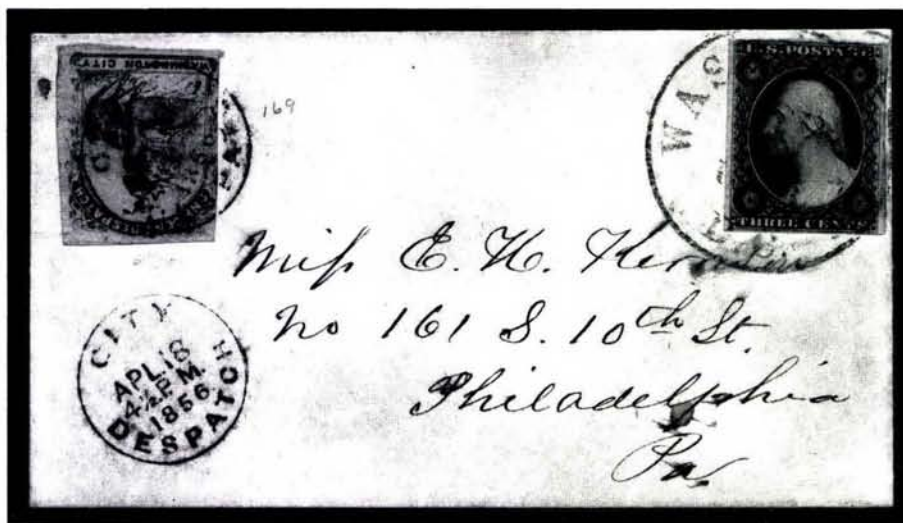 WASHINGTON CITY
169
WAS
U.S. POSTAGE
THREE CENTS
Miss E. H.
No 161 S. 10th St.
Philadelphia
Pa.
CITY
APL. 18
4½ P.M.
1856
DESPATCH